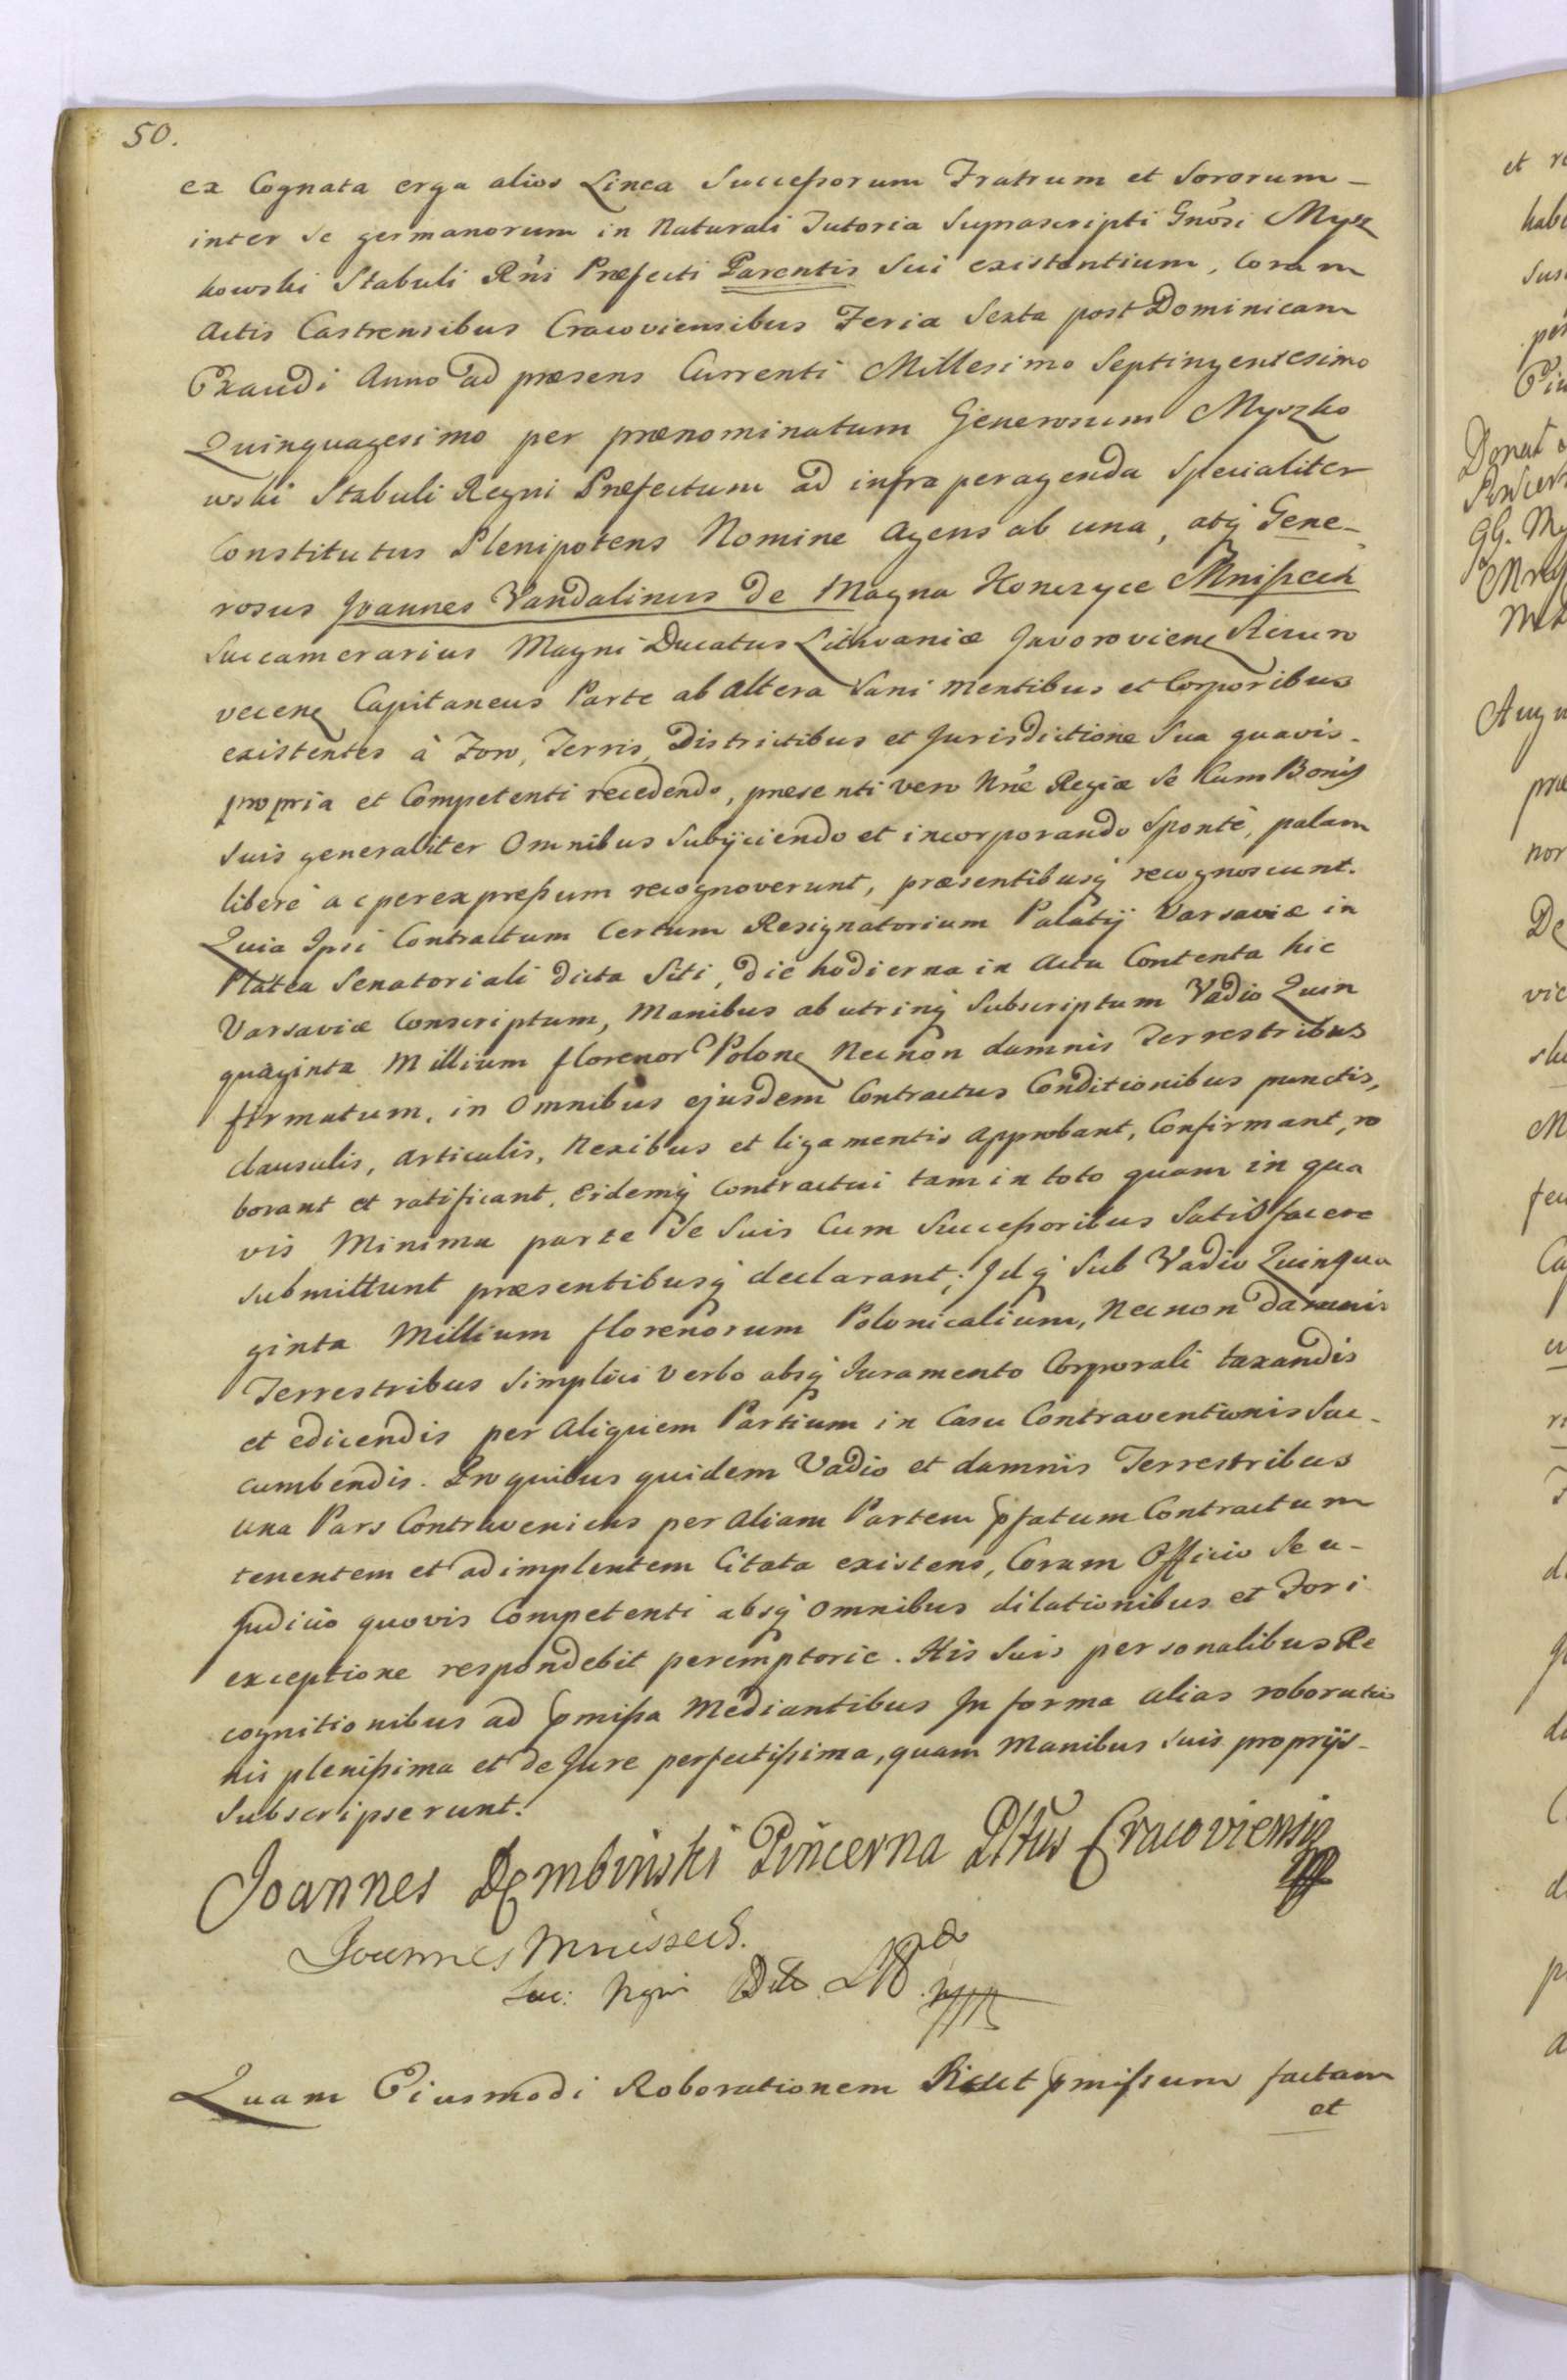 50.
ex Cognata erga alios Linea Successorum Fratrum et Sororum -
inter se germanorum in Naturali Tutoria Suprascripti Gnosi Mysz
kowski Stabuli Rni Præfecti Parentis Sui existentium, Coram
Actis Castrensibus Cracoviensibus Feria Sexta post Dominicam
Exaudi Anno ad præsens Currenti Millesimo Septingentesimo
Quinquagesimo per prænominatum Generosum Myszko
wski Stabuli Regni Præfectum ad infra peragenda specialiter
Constitutus Plenipotens Nomine Agens ab una, atq Gene-
rosus Joannes Vandalinus de Magna Konczyce Mniszech
Succamerarius Magni Ducatus Lithvaniæ Javoroviens
Capitaneus Parte ab altera Sani mentibus et Corporibus
existentes à Foro, Terris, Districtibus et Jurisdictione Sua quavis -
propria et Competenti recedendo, præsenti vero Nrae Regiæ Se Cum Bonis
Suis generaliter Omnibus subijciendo et incorporando sponte, palam
liberè ac per expressum recognoverunt, præsentibusq recognoscunt.
Quia Ipsi Contractum Certum Resignatorium Palatij Varsaviæ in
Platea Senatoriali dicta Siti, die hodierna in Actu Contenta hic
Varsaviæ Conscriptum, Manibus ab utrinq Subscriptum Vadio Quin
quaginta Millium florenor Polon Necnon damnis Terrestribus
firmatum, in Omnibus ejusdem Contractus Conditionibus punctis,
clausulis, Articulis, Nexibus et ligamentis Approbant, Confirmant, ro
borant et ratificant, Eidemq Contractui tam in toto quam in qua
vis Minima parte Se Suis Cum Successoribus Satisfacere
submittunt præsentibusq declarant; Idq Sub Vadio Quinqua
ginta Millium florenorum Polonicalium, Necnon damnis
Terrestribus Simplici Verbo absq Juramento Corporali taxandis
et edicendis per Aliquem Partium in Casu Contraventionis Suc -
cumbendis. Pro quibus quidem Vadio et damnis Terrestribus
Una Pars Contraveniens per Aliam Partem pfatum Contractum
tenentem et adimplentem Citata existens, Coram Officio Seu -
Judicio quovis Competenti absq Omnibus dilationibus et Fori
exceptione respondebit peremptorie. His Suis personalibus Re
cognitionibus ad pmissa Mediantibus In forma alias roboratio
nis plenissima et de Jure perfectissima, quam Manibus suis proprijs -
Subscripserunt.
Joannes Dembinski Pincerna Pltus Cracoviensis
Joannes Mniszech.
Suc:
Quam Eiusmodi Roborationem pmissum factam
et